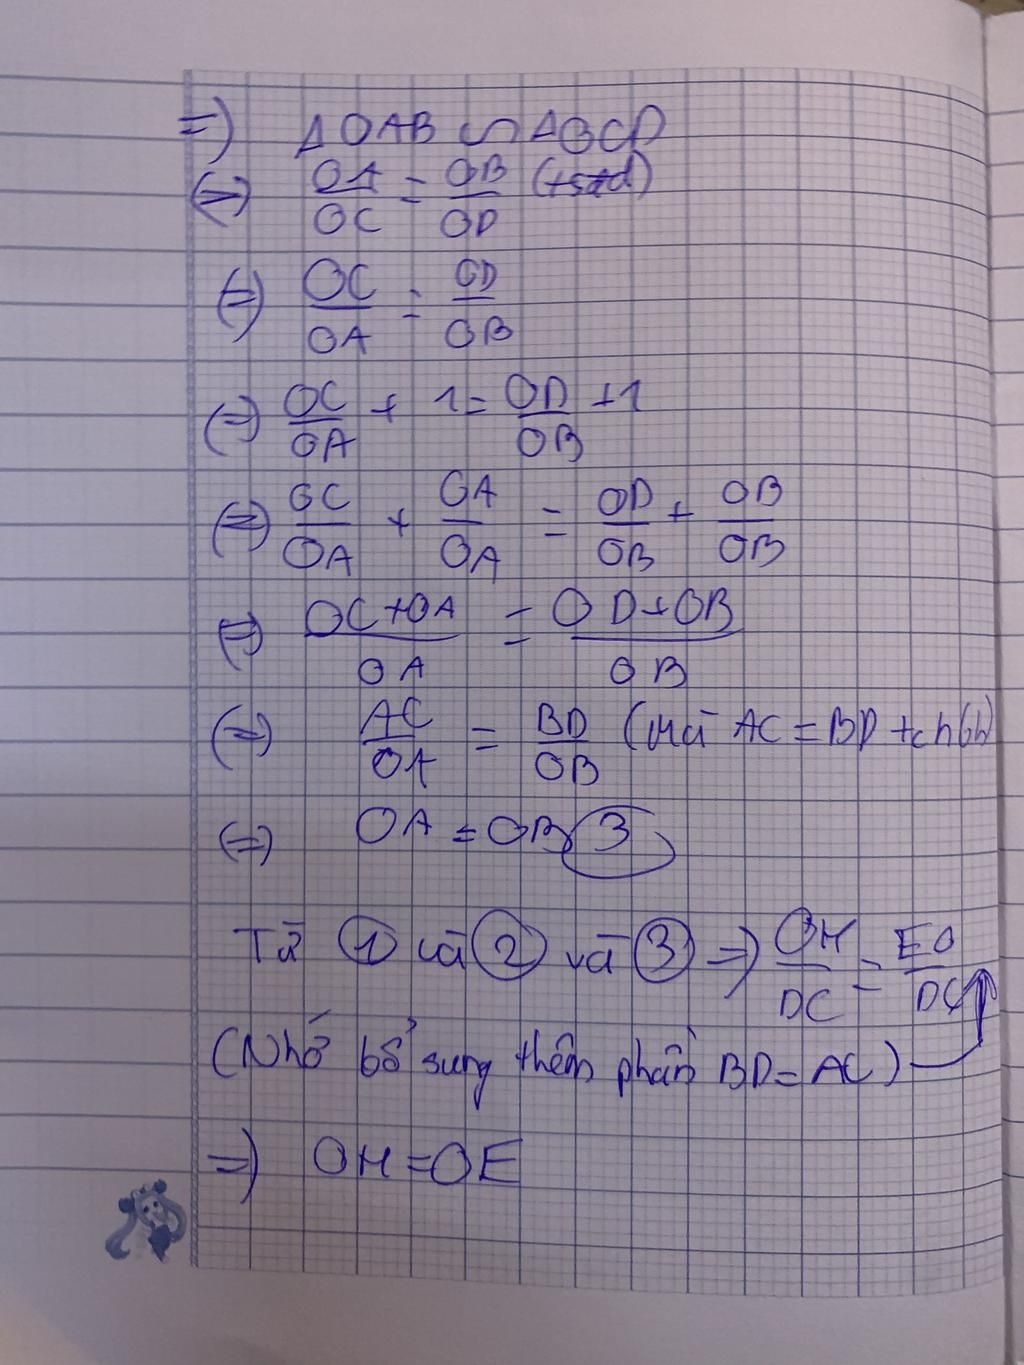 => ΔOAB ∽ ΔOCD
<=> OA/OC = OB/OD (tstd)
<=> OC/OA = OD/OB
<=> OC/OA + 1 = OD/OB + 1
<=> OC/OA + OA/OA = OD/OB + OB/OB
<=> OC+OA/OA = OD+OB/OB
<=> AC/OA = BD/OB (mà AC = BD
<=> OA = OB (3)
Từ (1) và (2) và (3) => OH/DC = EO/DC
(Nhớ bổ sung thêm phần BD = AC)
=> OH = OE